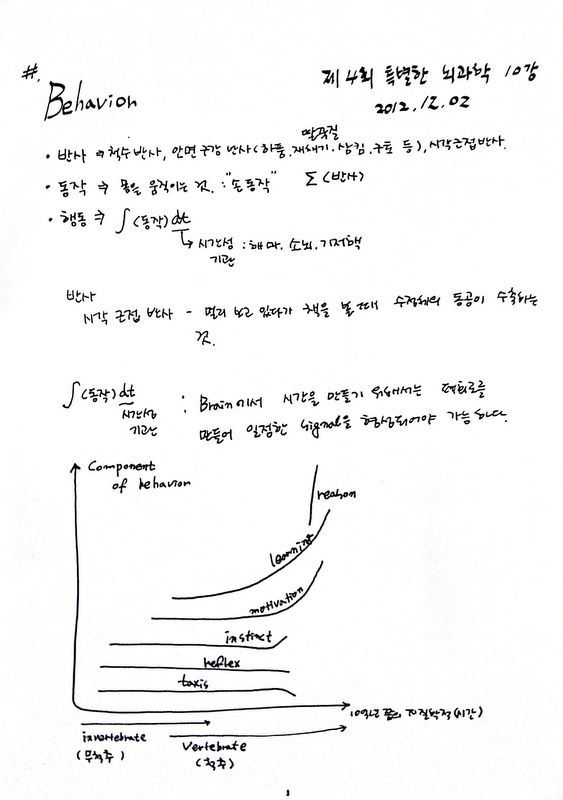 #.
제 4회 특별한 뇌과학 10강
Behavior
2012.12.02
딸꾹질
• 반사 ⇒ 척수반사, 안면구강 반사(하품, 재채기, 삼킴, 구토 등), 시각근접반사.
• 동작 ⇒ 몸을 움직이는 것. : "손동작" Σ(반사)
• 행동 ⇒ ∫(동작)dt
↳ 시간성 : 해마, 소뇌, 기저핵
기관
반사
시각 근접 반사 - 멀리 보고 있다가 책을 볼 때 수정체와 동공이 수축하는
것.
∫(동작)dt : Brain에서 시간을 만들기 위해서는 폐회로를
시간성
기관
만들어 일정한 signal을 형성되어야 가능하다.
Component
of behavior
reason
learning
motivation
instinct
reflex
taxis
지질학적(시간)
invertebrate
(무척추)
vertebrate
(척추)
1